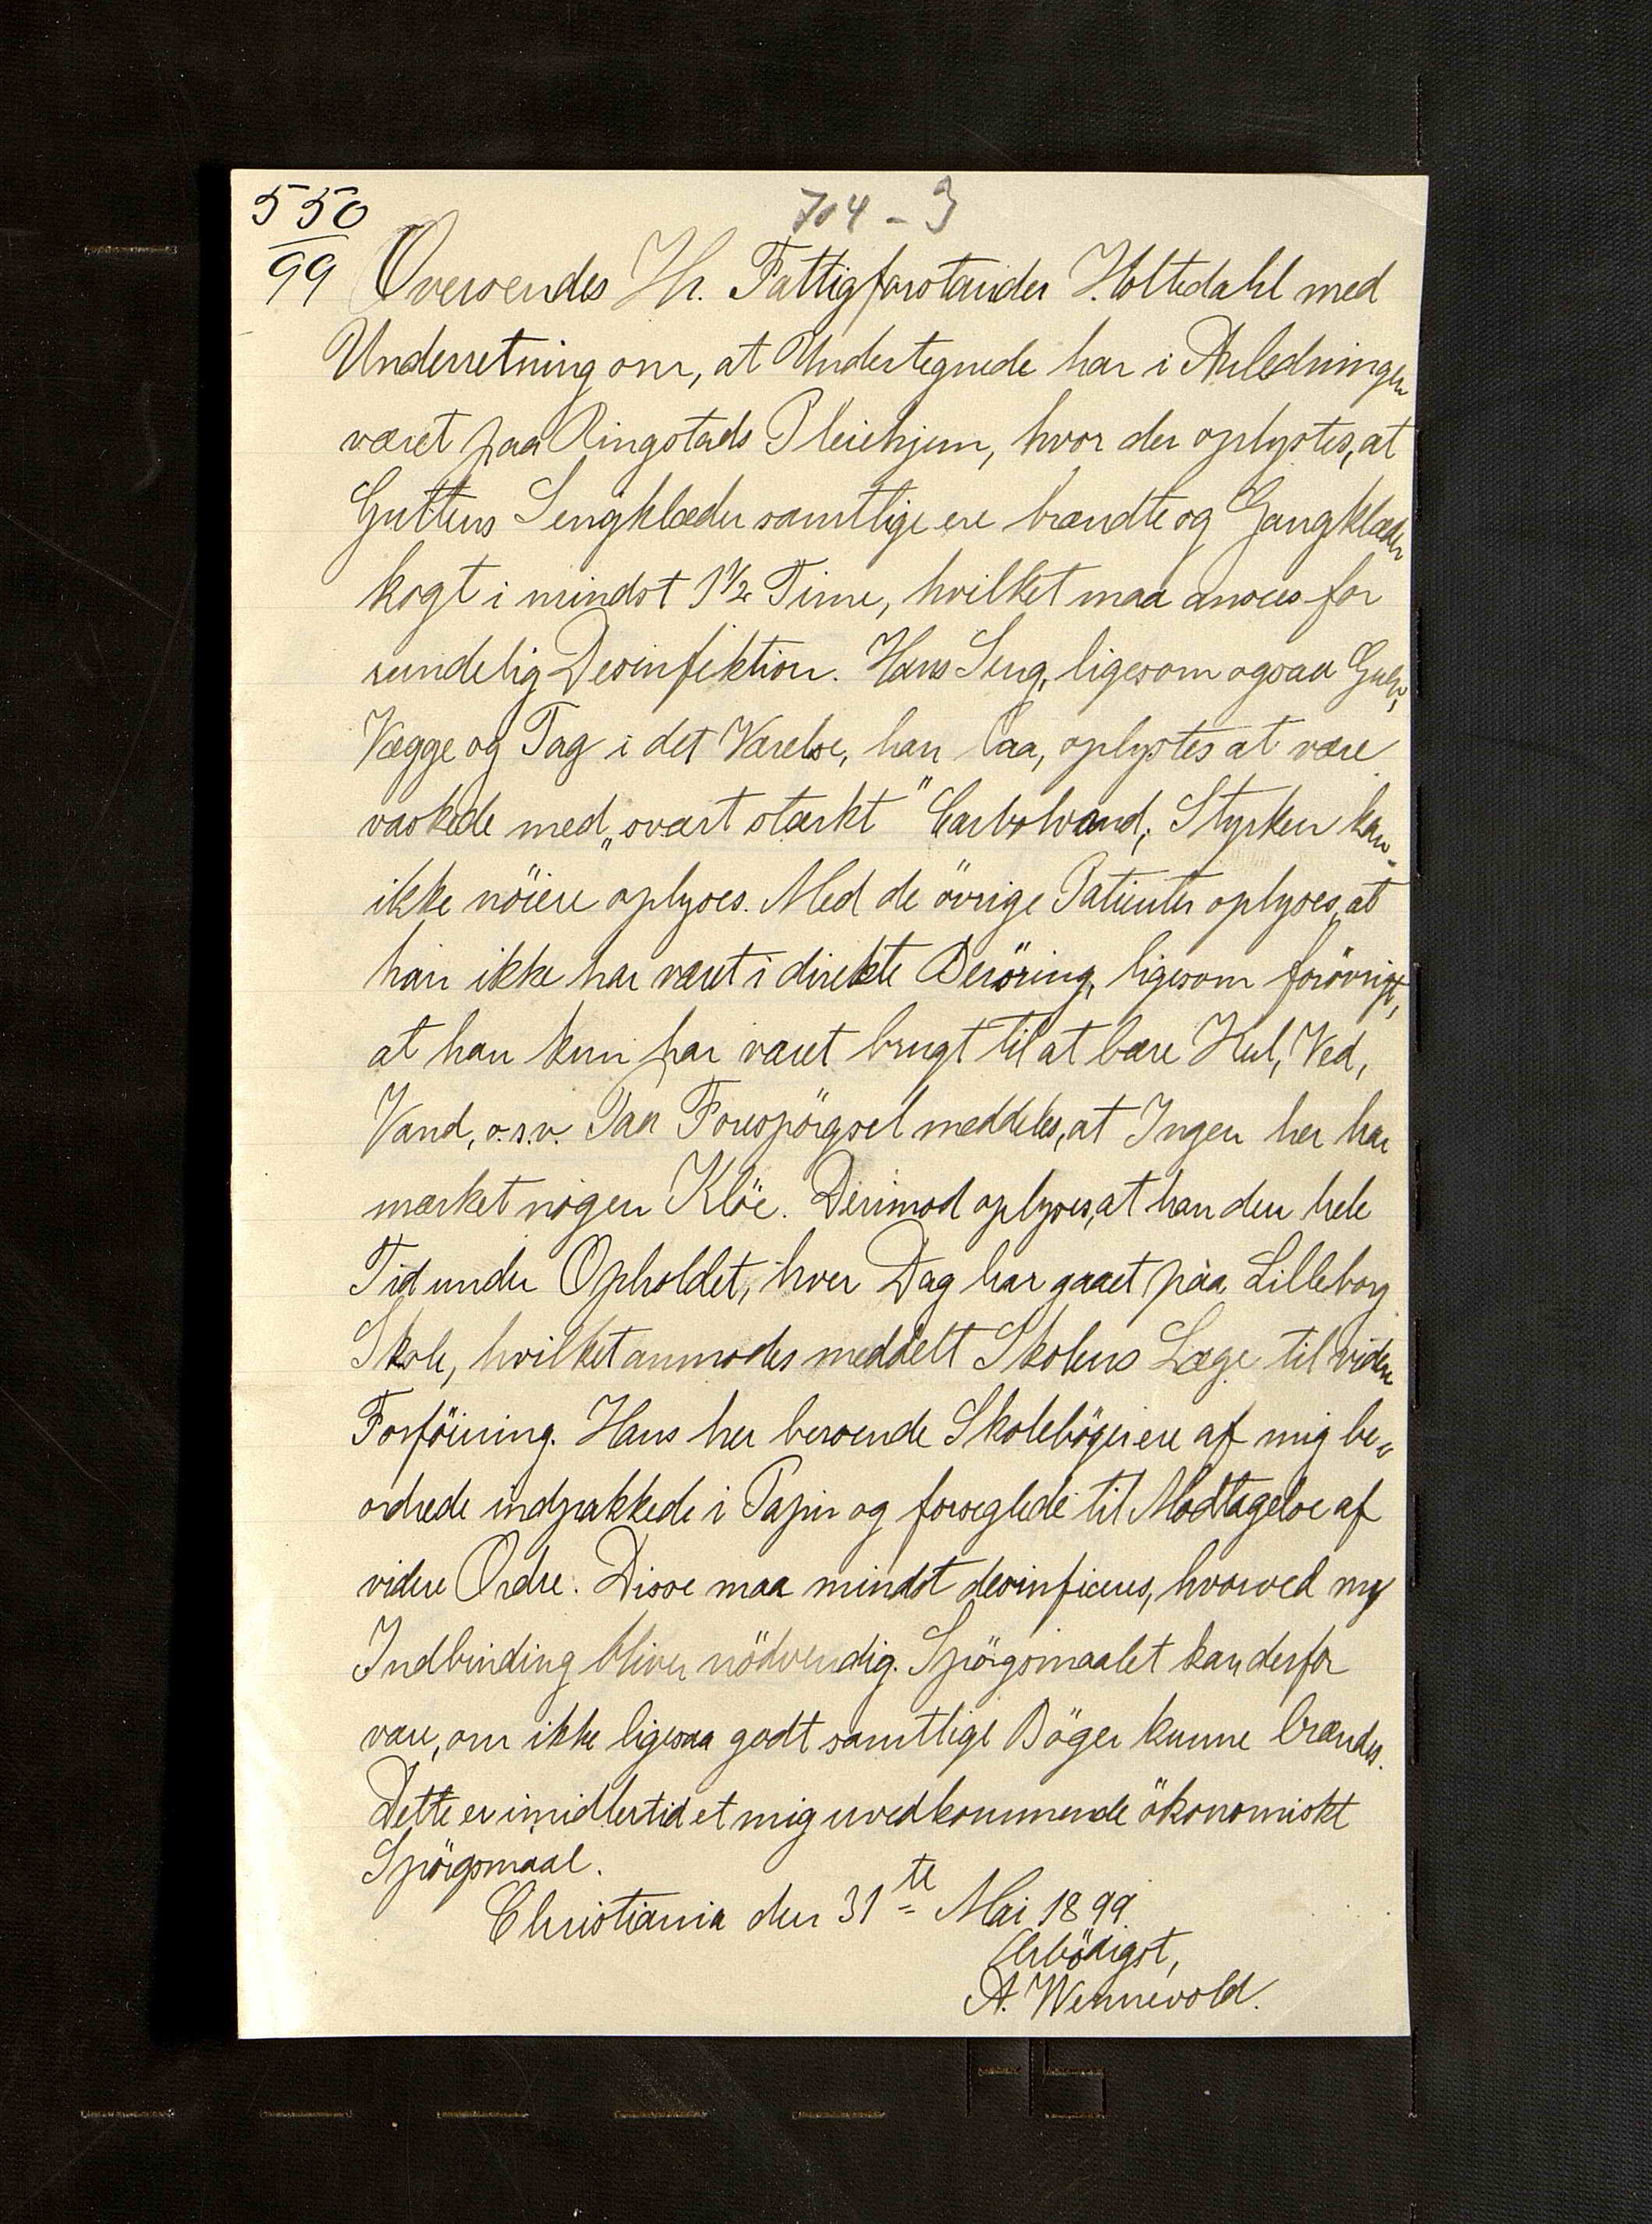 550
99
704-3
Oversendes Hr. Fattigforstander Holtedahl med
Underretning om, at Undertegnede har i Anledningen
været paa Ringstads Pleiehjem, hvor der oplystes, at
Guttens Sengklæder samtlige ere brændte og Gangklæder
kogt i mindst 1½ Time, hvilket maa ansees for
rundelig Desinfektion. Hans Seng, ligesom ogsaa Gulv,
Vægge og Tag i det Værelse, han laa, oplystes at være
vaskede med „svært stærkt" Carbolvand; Styrken kan
ikke nöiere oplyses. Med de övrige Patienter oplyses, at
han ikke har været i direkte Beröring, ligesom forövrigt,
at han kun har været brugt til at bære Kul, Ved,
Vand, o.s.v. Paa Forespörgsel meddeles, at Ingen her har
mærket nogen Klöe. Derimod oplyses, at han den hele
Tid under Opholdet, hver Dag har gaaet paa Lilleborg
Skole, hvilket anmodes meddelt Skolens Læge til videre
Forföining. Hans her beroende Skoleböger ere af mig be-
ordrede indpakkede i Papir og forseglede til Modtagelse af
videre Ordre. Disse maa mindst desinficeres, hvorved ny
Indbinding bliver nödvendig. Spörgsmaalet kan derfor
være, om ikke ligesaa godt samtlige Böger kunne brændes.
Dette er imidlertid et mig uvedkommende ökonomiskt
Spörgsmaal.
Christiania den 31te Mai 1899.
Ærbödigst,
A. Wennevold.